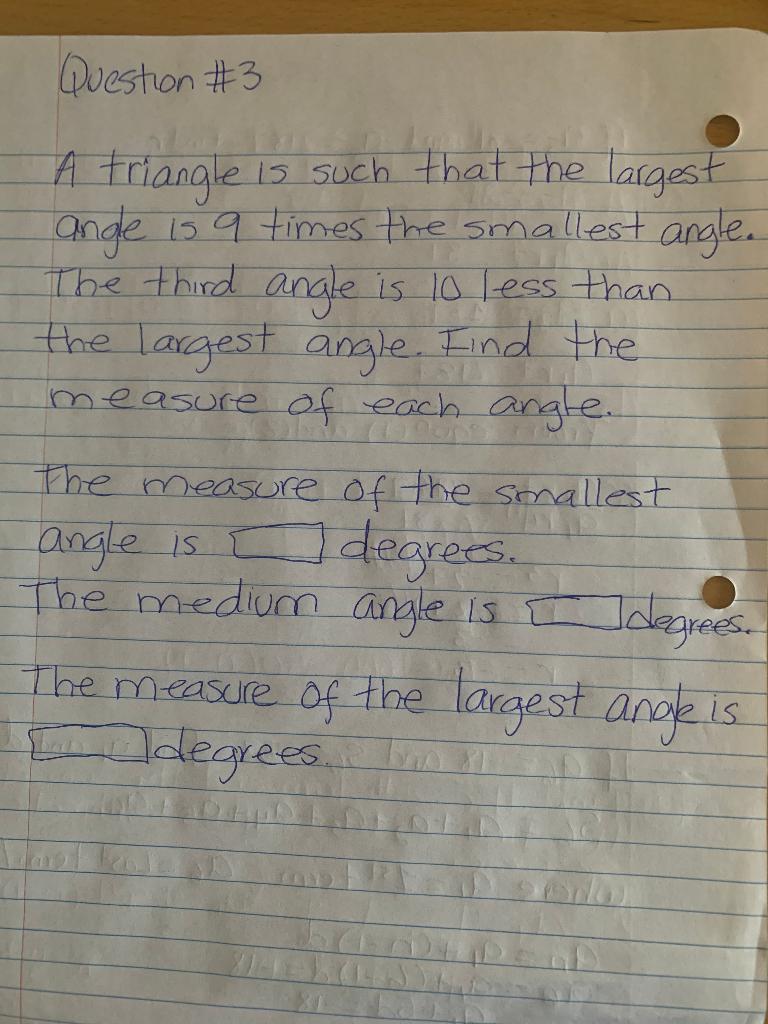 Question #3
A triangle is such that the largest
angle is 9 times the smallest angle.
The third angle is 10 less than
the largest angle. Find the
measure of each angle.
The measure of the smallest
angle is degrees.
The medium angle is degrees.
The measure of the largest angle is
degrees.